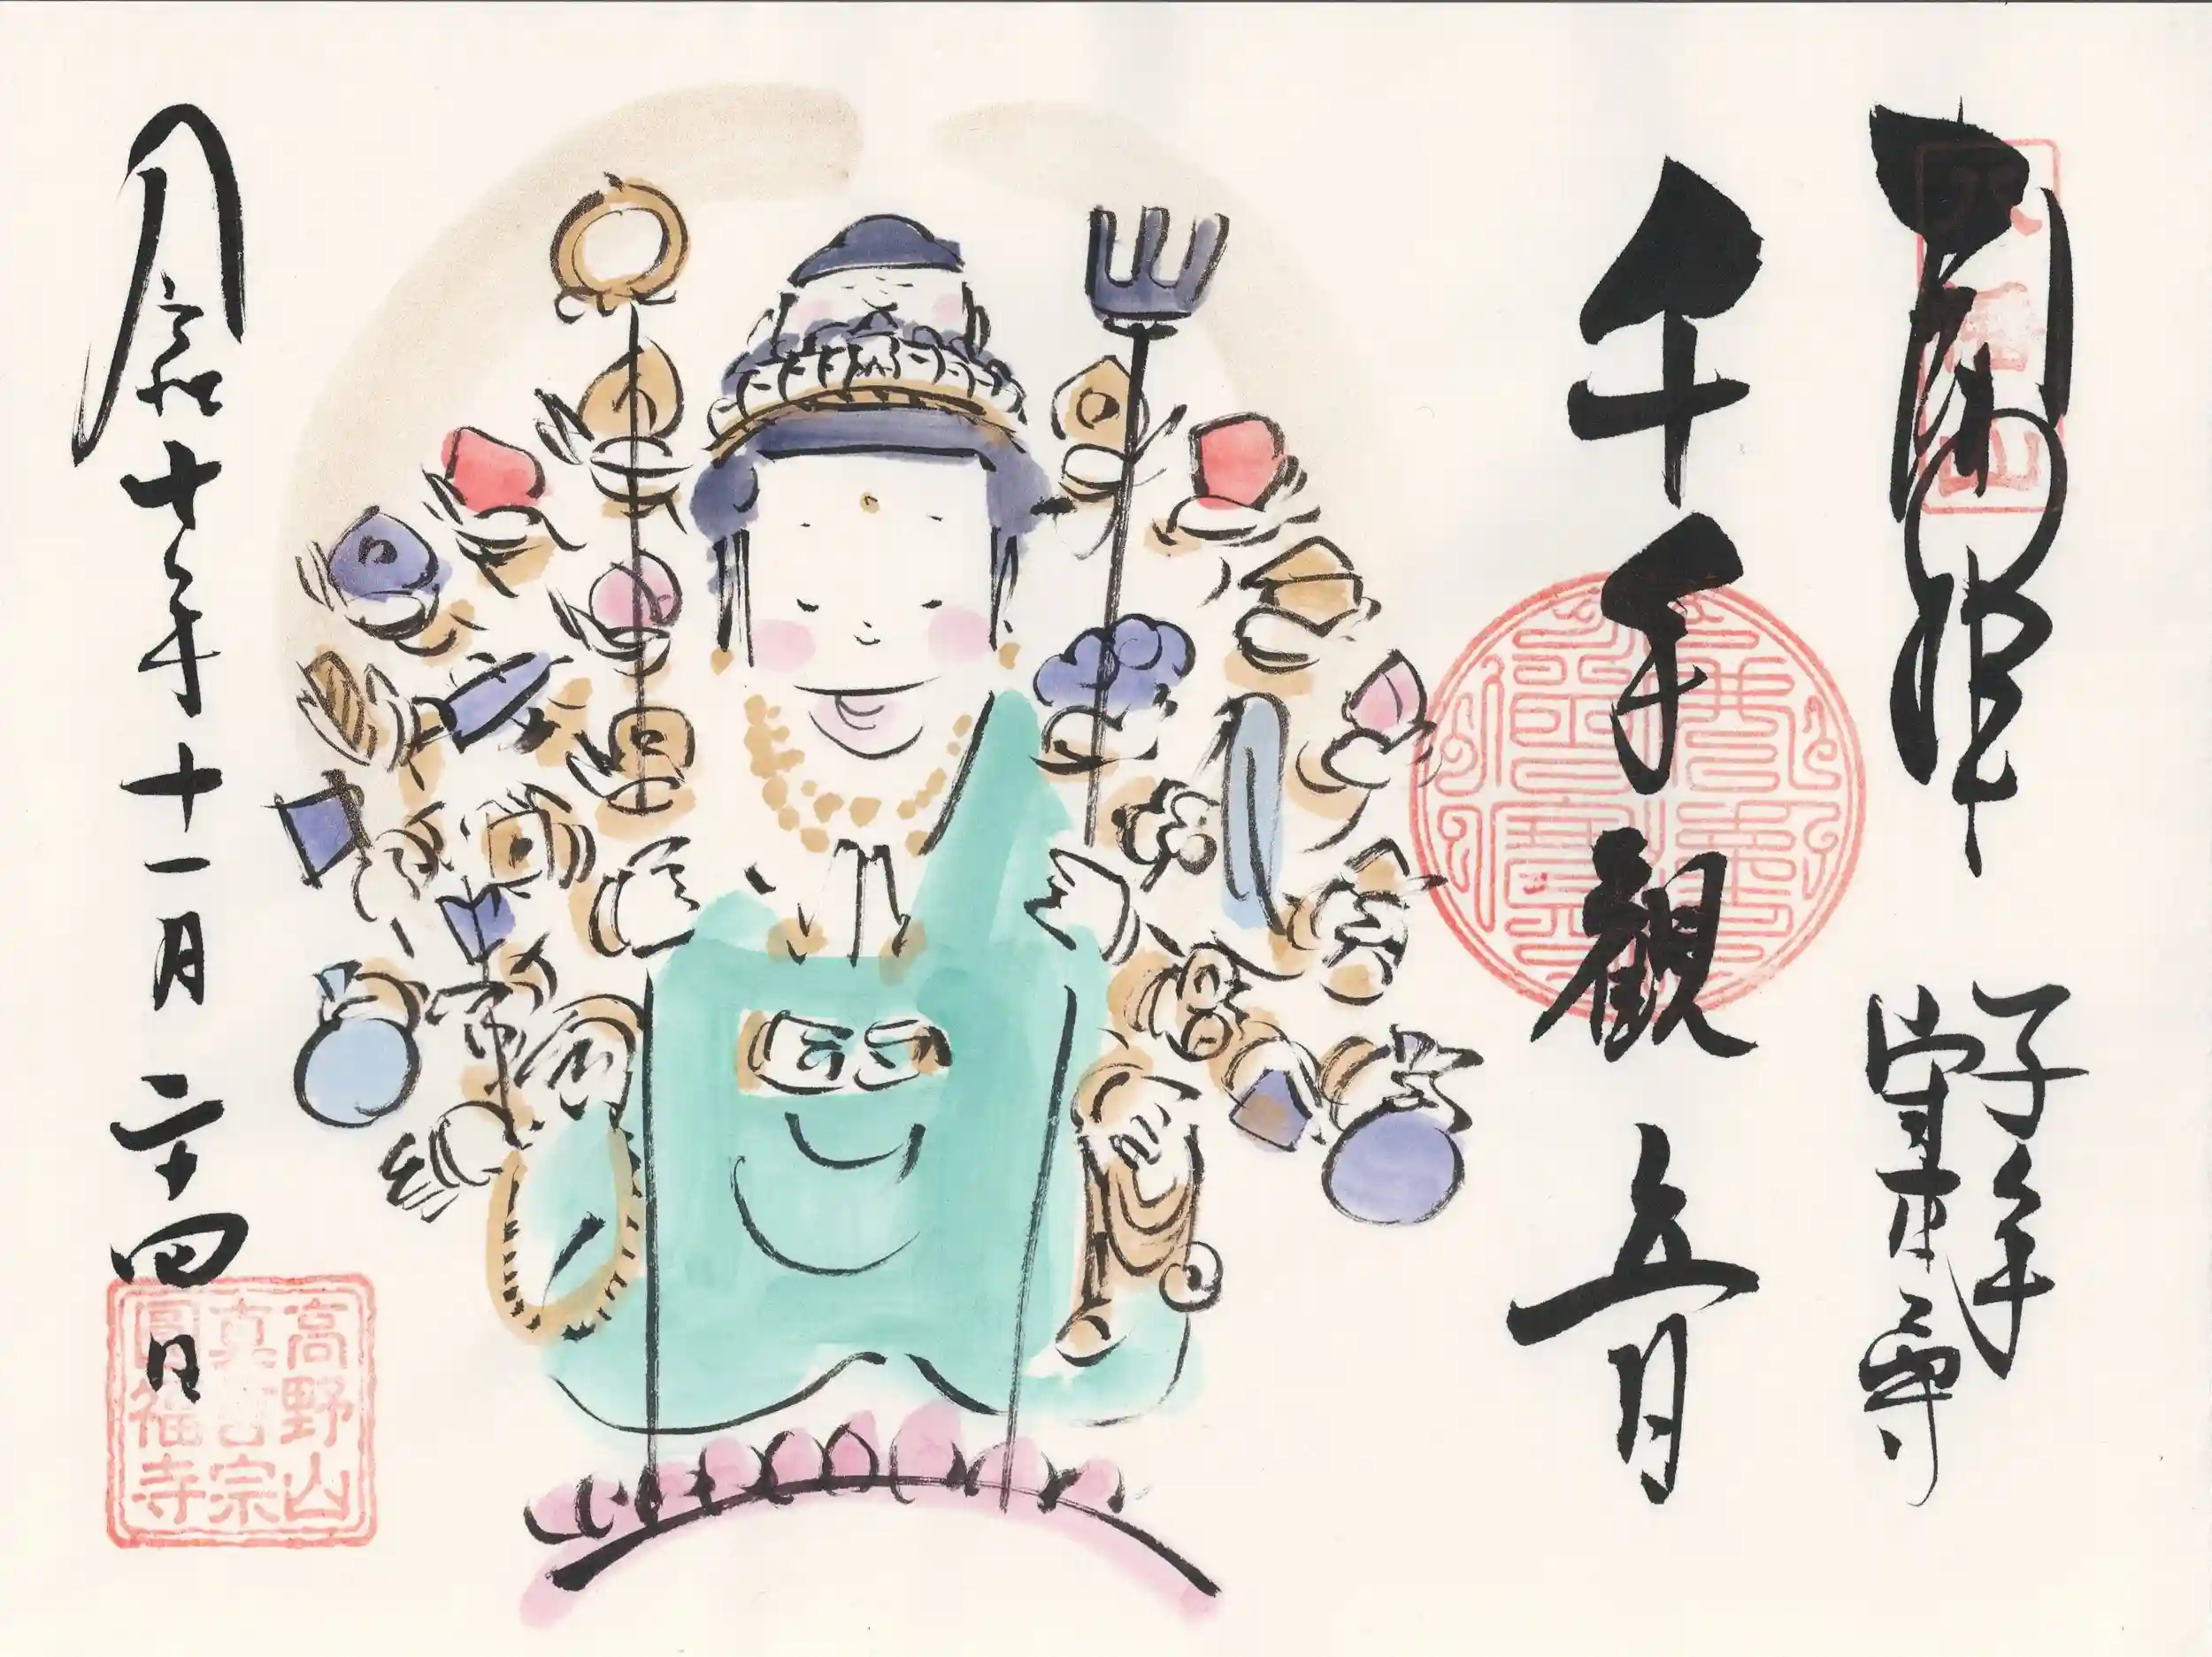 子年
守本尊
千手観音
令和七年十一月二十四日
高野山
真言宗
圓福寺